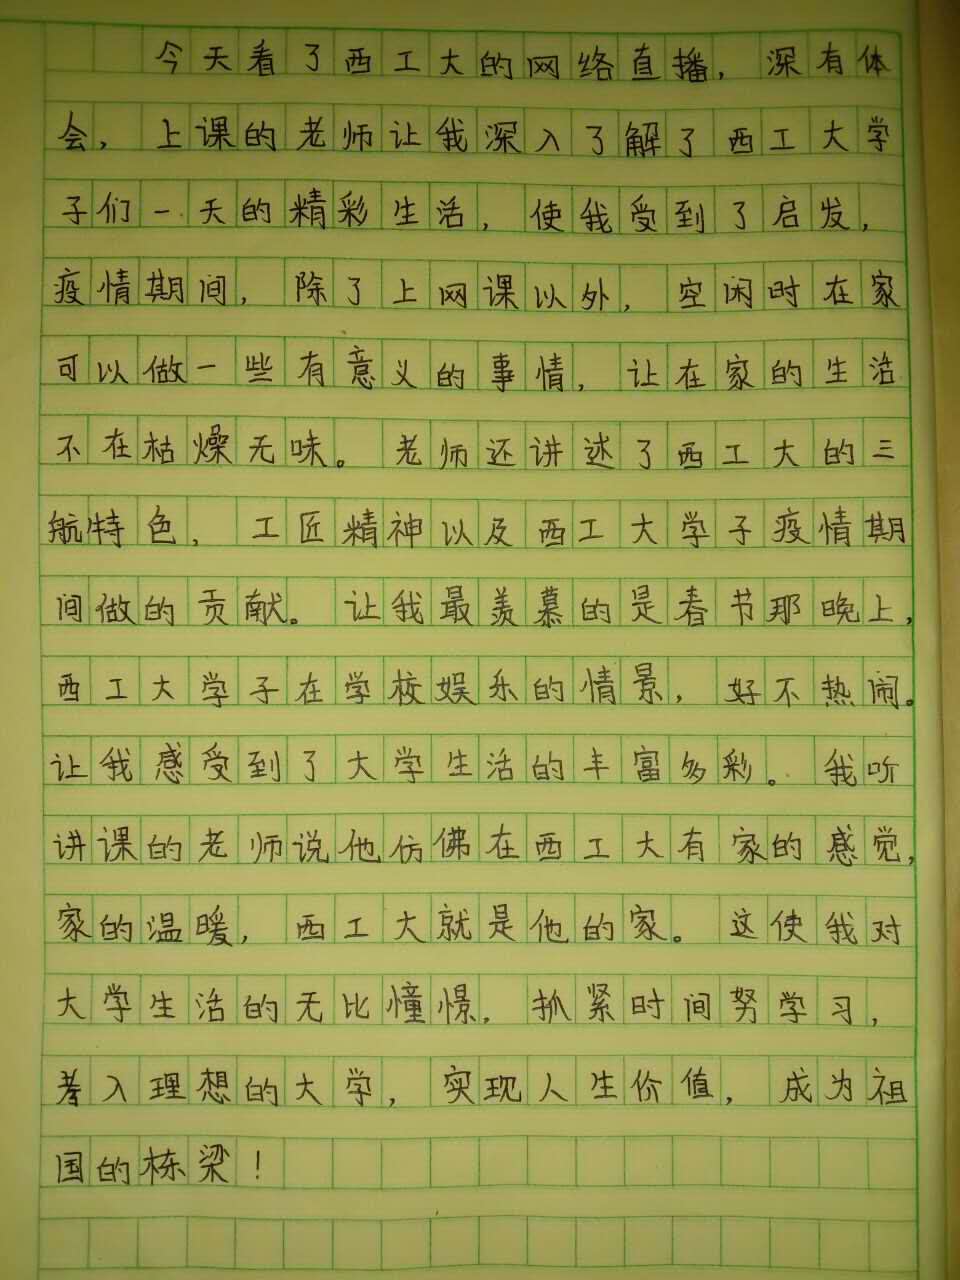 今天看了西工大的网络直播，深有体
会，上课的老师让我深入了解了西工大学
子们一天的精彩生活，使我受到了启发，
疫情期间，除了上网课以外，空闲时在家
可以做一些有意义的事情，让在家的生活
不在枯燥无味。老师还讲述了西工大的三
航特色，工匠精神以及西工大学子疫情期
间做的贡献。让我最羡慕的是春节那晚上，
西工大学子在学校娱乐的情景，好不热闹。
让我感受到了大学生活的丰富多彩。我听
讲课的老师说他仿佛在西工大有家的感觉，
家的温暖，西工大就是他的家。这使我对
大学生活的无比憧憬，抓紧时间努学习，
考入理想的大学，实现人生价值，成为祖
国的栋梁！